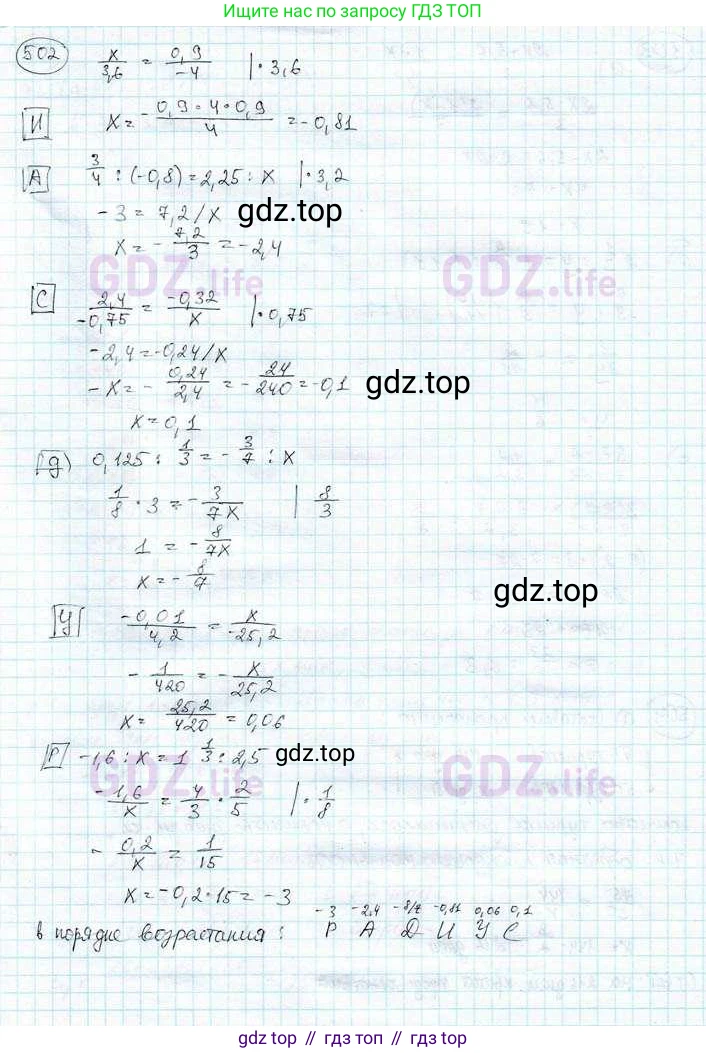 Ищите нас по запросу ГДЗ ТОП
502 x/3,6 = 0,9/-4 |·3,6
И x = -0,9·4·0,9/4 = -0,81
А 3/4 : (-0,8) = 2,25 : x |·3,2
-3 = 7,2/x
gdz.top
x = -7,2/3 = -2,4
GDZ.life GDZ.life
С 2,4/-0,75 = -0,32/x |·0,75
-2,4 = -0,24/x
-x = -0,24/2,4 = -24/240 = -0,1
gdz.top
x = 0,1
д) 0,125 : 1/3 = -3/7 : x
1/8 · 3 = -3/7x | 8/3
1 = -8/7x
x = -8/7
gdz.top
У -0,01/4,2 = x/-25,2
-1/420 = -x/25,2
x = 25,2/420 = 0,06
Р -1,6 : x = 1 1/3 : 2,5
gdz.top
GDZ.life GDZ.life
-1,6/x = 4/3 · 2/5 |·1/8
-0,2/x = 1/15
x = -0,2·15 = -3
-3 -2,4 -8/7 -0,81 0,06 0,1
в порядке возрастания: Р А Д И У С
gdz.top // гдз топ // gdz top // гдз.top